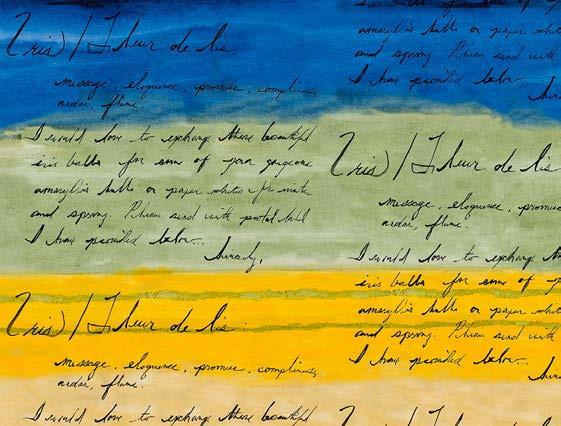 Iris / Fleur de lis
message, eloquence, promise, compliments,
ardor, flame.
I would love to exchange these beautiful
iris bulbs for some of your gorgeous
amaryllis bulbs or paper whites for
and spring. Please send with postal label
I have provided below...
Sincerely,
Iris / Fleur de lis
message, eloquence, promise, compliments,
ardor, flame.
I would love to exchange these beautiful
iris bulbs for some of
amaryllis bulbs or paper
and spring. Please send with
I have provided below...
Iris / Fleur de lis
message, eloquence, promise
ardor, flame.
I would love to exchange
iris bulbs for some of
amaryllis bulbs or paper
and spring. Please send with
I have provided below...
Iris / Fleur de lis